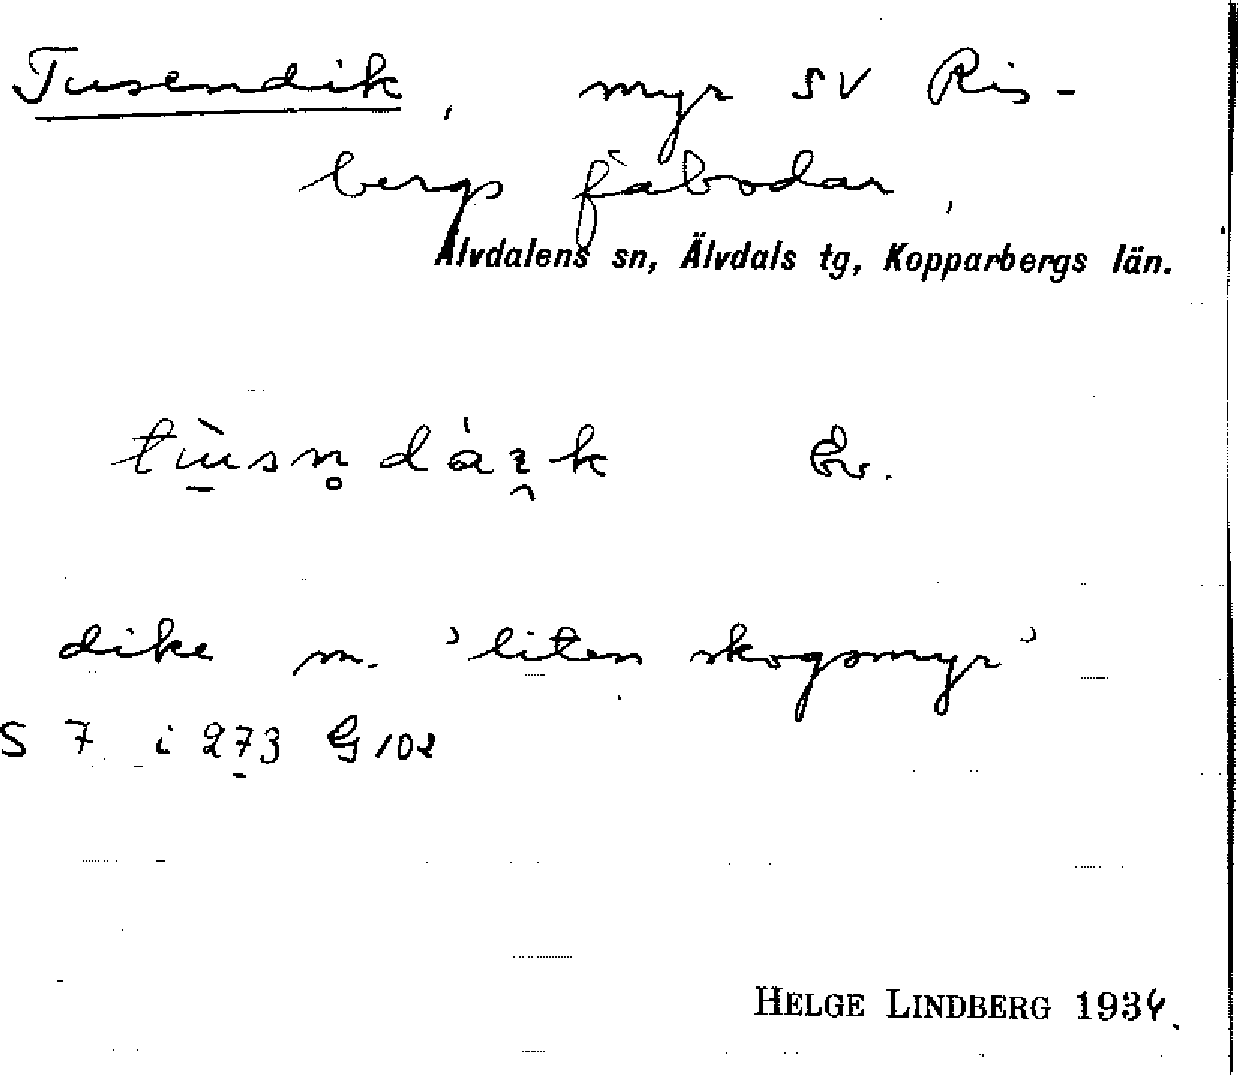 Tusendik, myr SV Ris-
bergs fäbodar,
Älvdalens sn, Älvdals tg, Kopparbergs län.
Ev.
dike m. 'liten skogsmyr'
S 7 i 273 G 102
HELGE LINDBERG 1934.